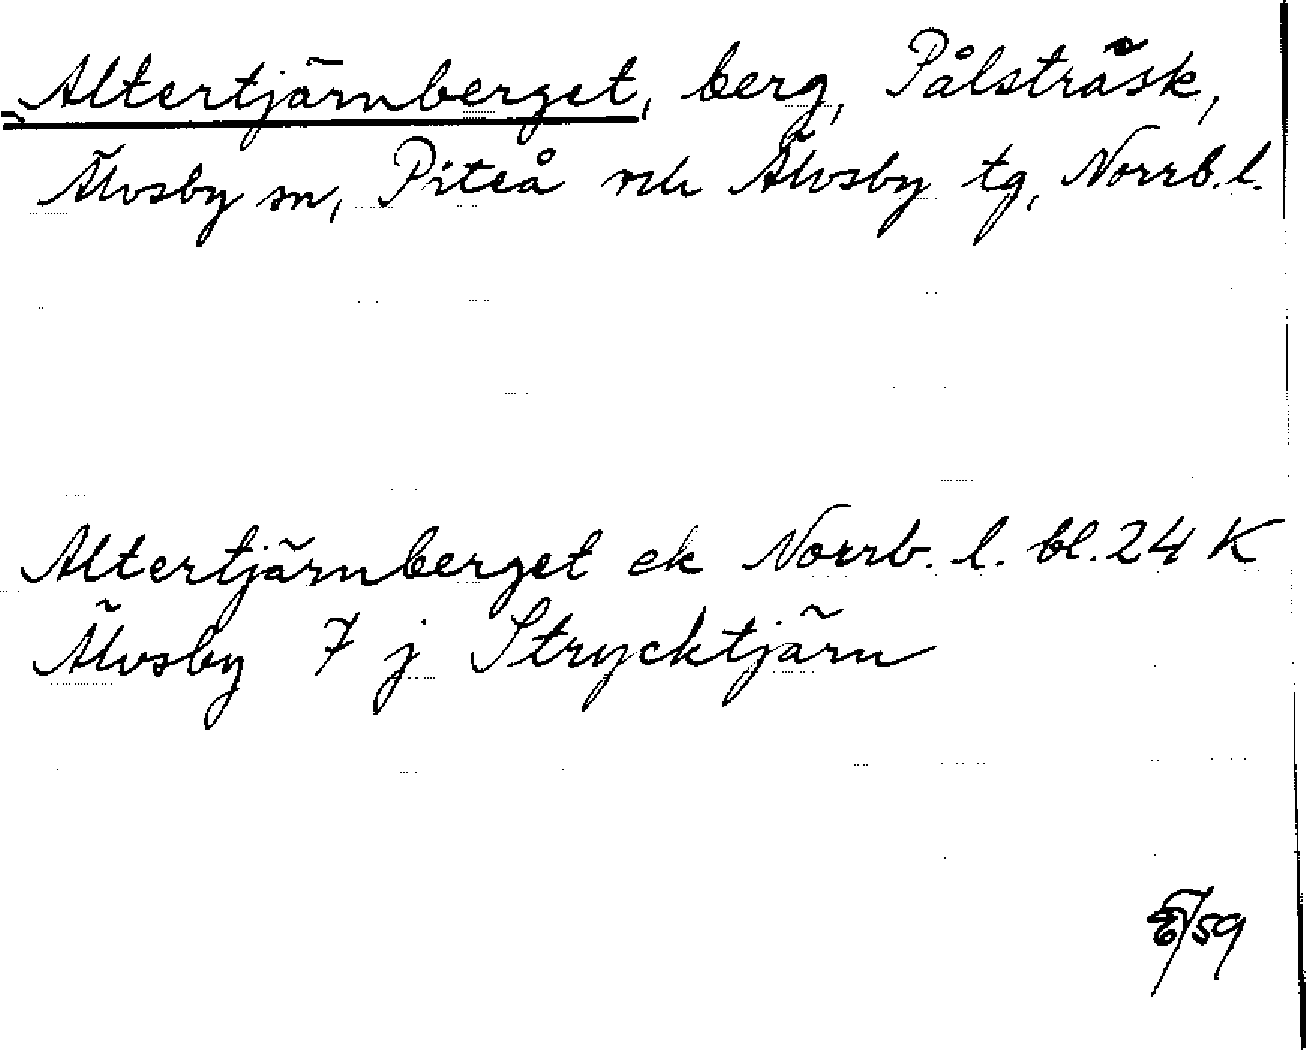 Altertjärnberget, berg, Pålsträsk,
Älvsby sn, Piteå och Älvsby tg, Norrb. l.
Altertjärnberget ek Norrb. l. bl. 24 K
Älvsby 7 j Strycktjärn
/59